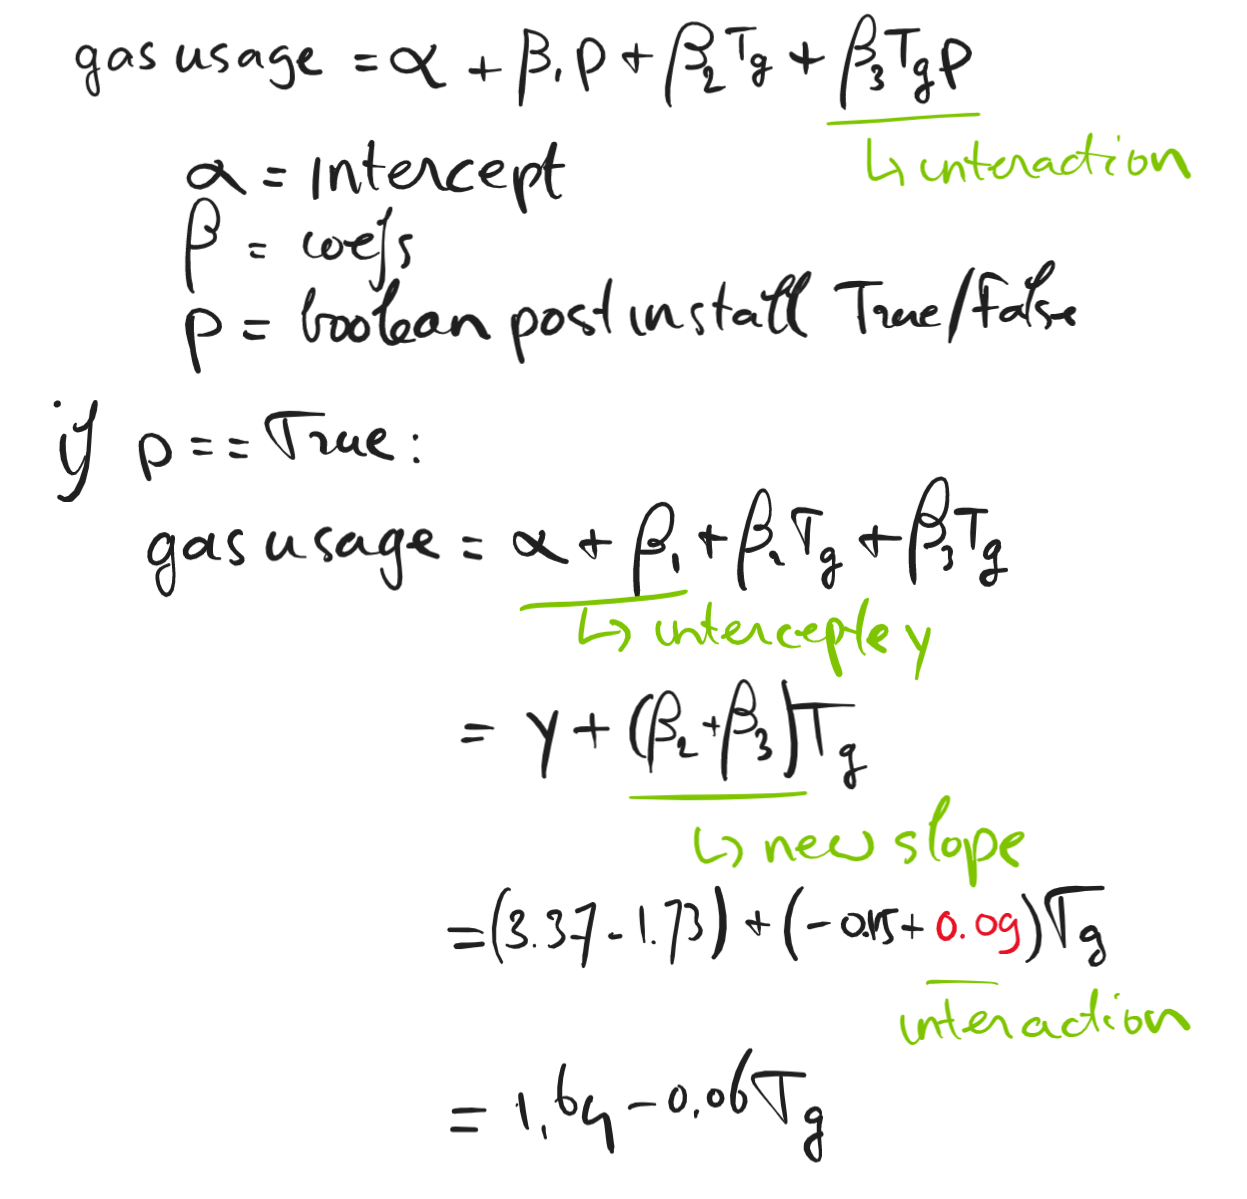 gas usage = α + β₁ p + β₂ Tg + β₃ Tg p
↳ interaction
α = intercept
β = coefs
p = boolean post install True/False
if p == True:
gas usage = α + β₁ + β₂ Tg + β₃ Tg
↳ intercept e y
= y + (β₂ + β₃) Tg
↳ new slope
= (3.37 - 1.73) + (-0.15 + 0.09) Tg
interaction
= 1.64 - 0.06 Tg